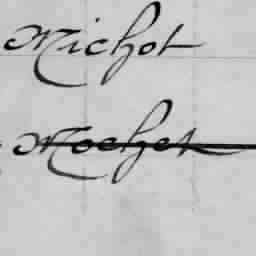 Michot
Mochet